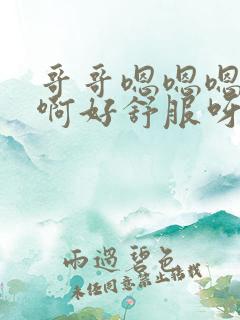 哥哥嗯嗯嗯
啊好舒服呀
雨過碧色
未经同意禁止转载